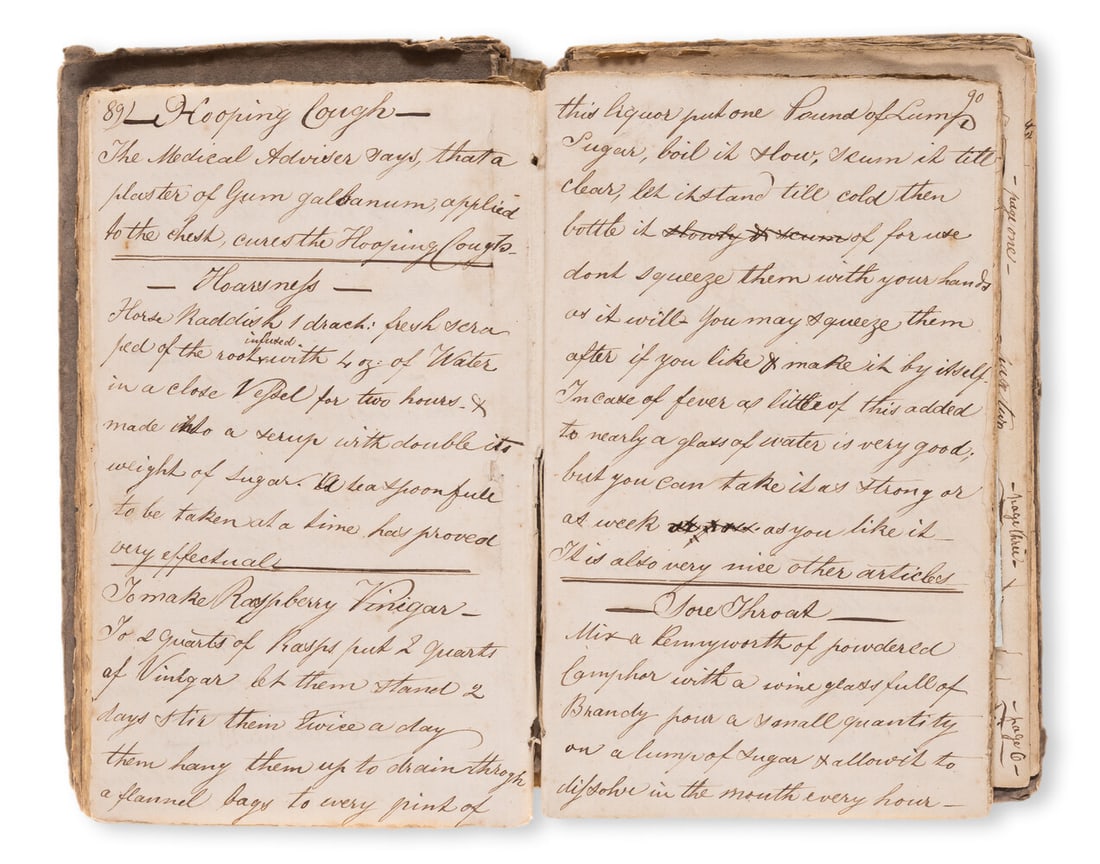 89 — Hooping Cough —
The Medical Adviser says, that a
plaster of Gum galbanum, applied
to the chest, cures the Hooping Cough-
— Hoarsneſs —
Horse Raddish 1 drach: fresh scra
infused
ped of the root with 4 oz: of Water
in a close Veſsel for two hours - &
made into a serup with double its
weight of sugar. A teaspoonfull
to be taken at a time has proved
very effectual
To make Raspberry Vinigar —
To 2 quarts of Rasps put 2 quarts
of Vinigar let them stand 2
days stir them twice a day
them hang them up to drain throgh
a flannel bags to every pint of
90
this liquor put one Pound of Lump
Sugar, boil it slow, scum it till
clear, let it stand till cold then
bottle it slowly & scum of for use
dont squeeze them with your hands
as it will - You may squeeze them
after if you like & make it by itself.
In case of fever a little of this added
to nearly a glass of water is very good,
but you can take it as strong or
as week as you like it
It is also very nice other articles
— Sore Throat —
Mix a Pennyworth of powdered
Camphor with a wine glass full of
Brandy pour a small quantity
on a lump of sugar & allow it to
diſsolve in the mouth every hour —
- page one -
- page three -
- page 6 -